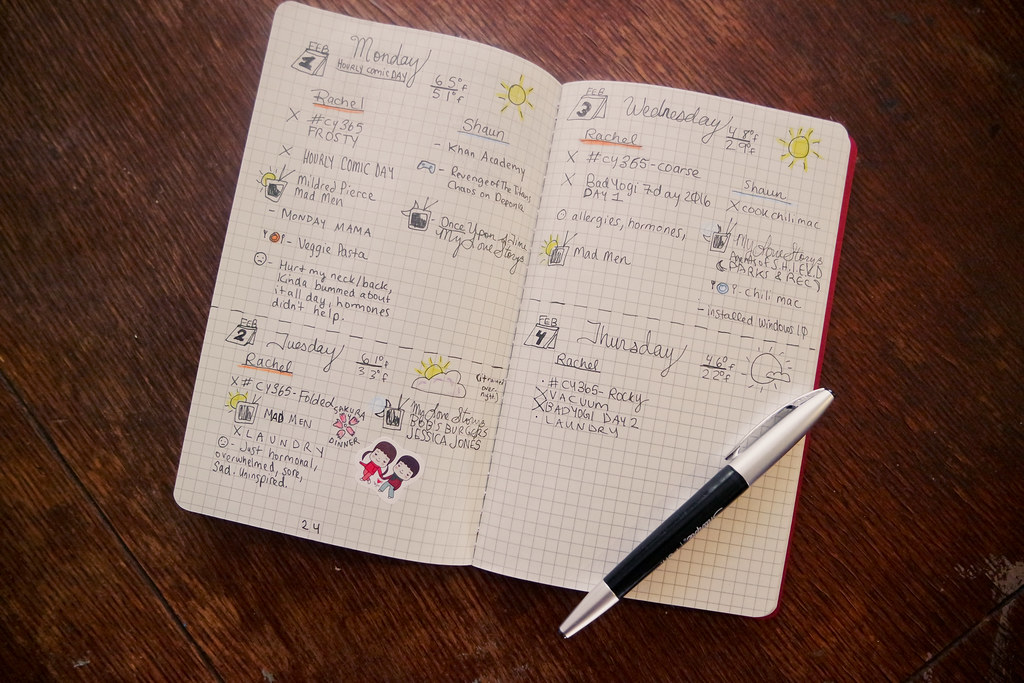 FEB
1
Monday
HOURLY COMIC DAY
65°F
51°F
Rachel
X #CY365
FROSTY
X HOURLY COMIC DAY
Mildred Pierce
Mad Men
- MONDAY MAMA
- Veggie Pasta
- Hurt my neck/back,
Kinda bummed about
it all day, hormones
didn't help.
Shaun
- Khan Academy
- Revenge of the Titans
Chaos on Deponia
Once Upon A Time
My Love Story
FEB
2
Tuesday
61°F
33°F
Rachel
X #CY365-Folded
MAD MEN
X LAUNDRY
- Just hormonal,
overwhelmed, sore,
Sad. Uninspired.
SAKURA
DINNER
My Love Story
BOB'S BURGERS
JESSICA JONES
over-
night)
24
FEB
3
Wednesday
48°F
29°F
Rachel
X #CY365-coarse
X Bad Yogi 7 day 2016
DAY 1
allergies, hormones,
Mad Men
Shaun
X cook chili mac
My Love Story
Agents of S.H.I.E.L.D
PARKS & REC
- chili mac
- installed Windows 10
FEB
4
Thursday
46°F
22°F
Rachel
· #CY365-Rocky
X VACUUM
X BADYOGI DAY 2
· LAUNDRY